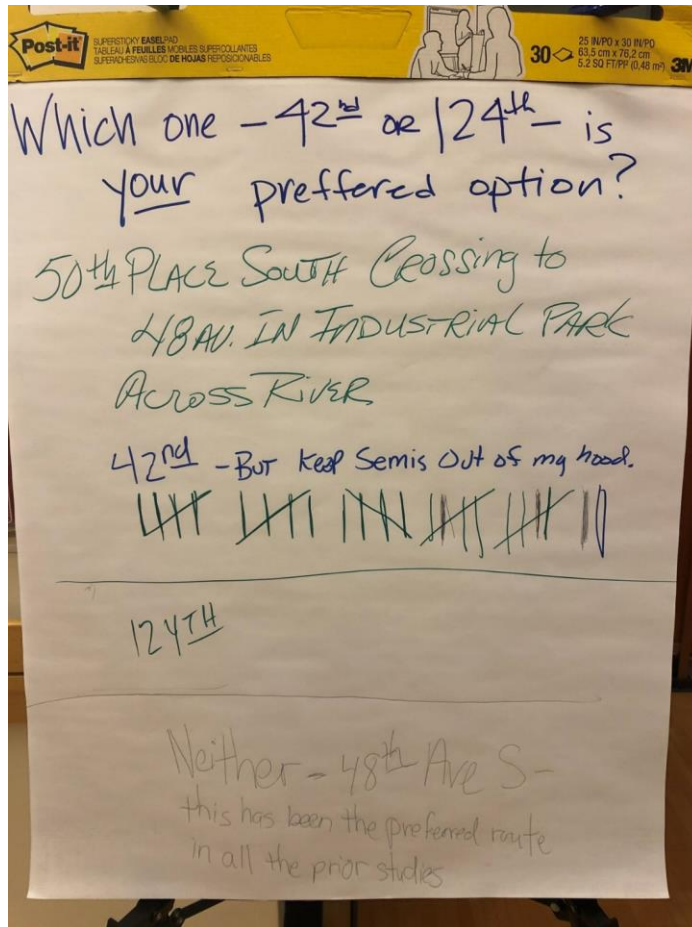 Post-it
SUPERSTICKY EASEL PAD
TABLEAU À FEUILLES MOBILES SUPERCOLLANTES
SUPERADHESIVAS BLOC DE HOJAS REPOSICIONABLES
30
25 IN/PO x 30 IN/PO
63,5 cm x 76,2 cm
5.2 SQ FT/PI² (0,48 m²)
3M
Which one - 42nd or 124th - is
your preffered option?
50th PLACE SOUTH CROSSING to
48 AV. IN INDUSTRIAL PARK
ACROSS RIVER
42nd - But keep Semis Out of my hood.
124TH
Neither - 48th Ave S -
this has been the preferred route
in all the prior studies